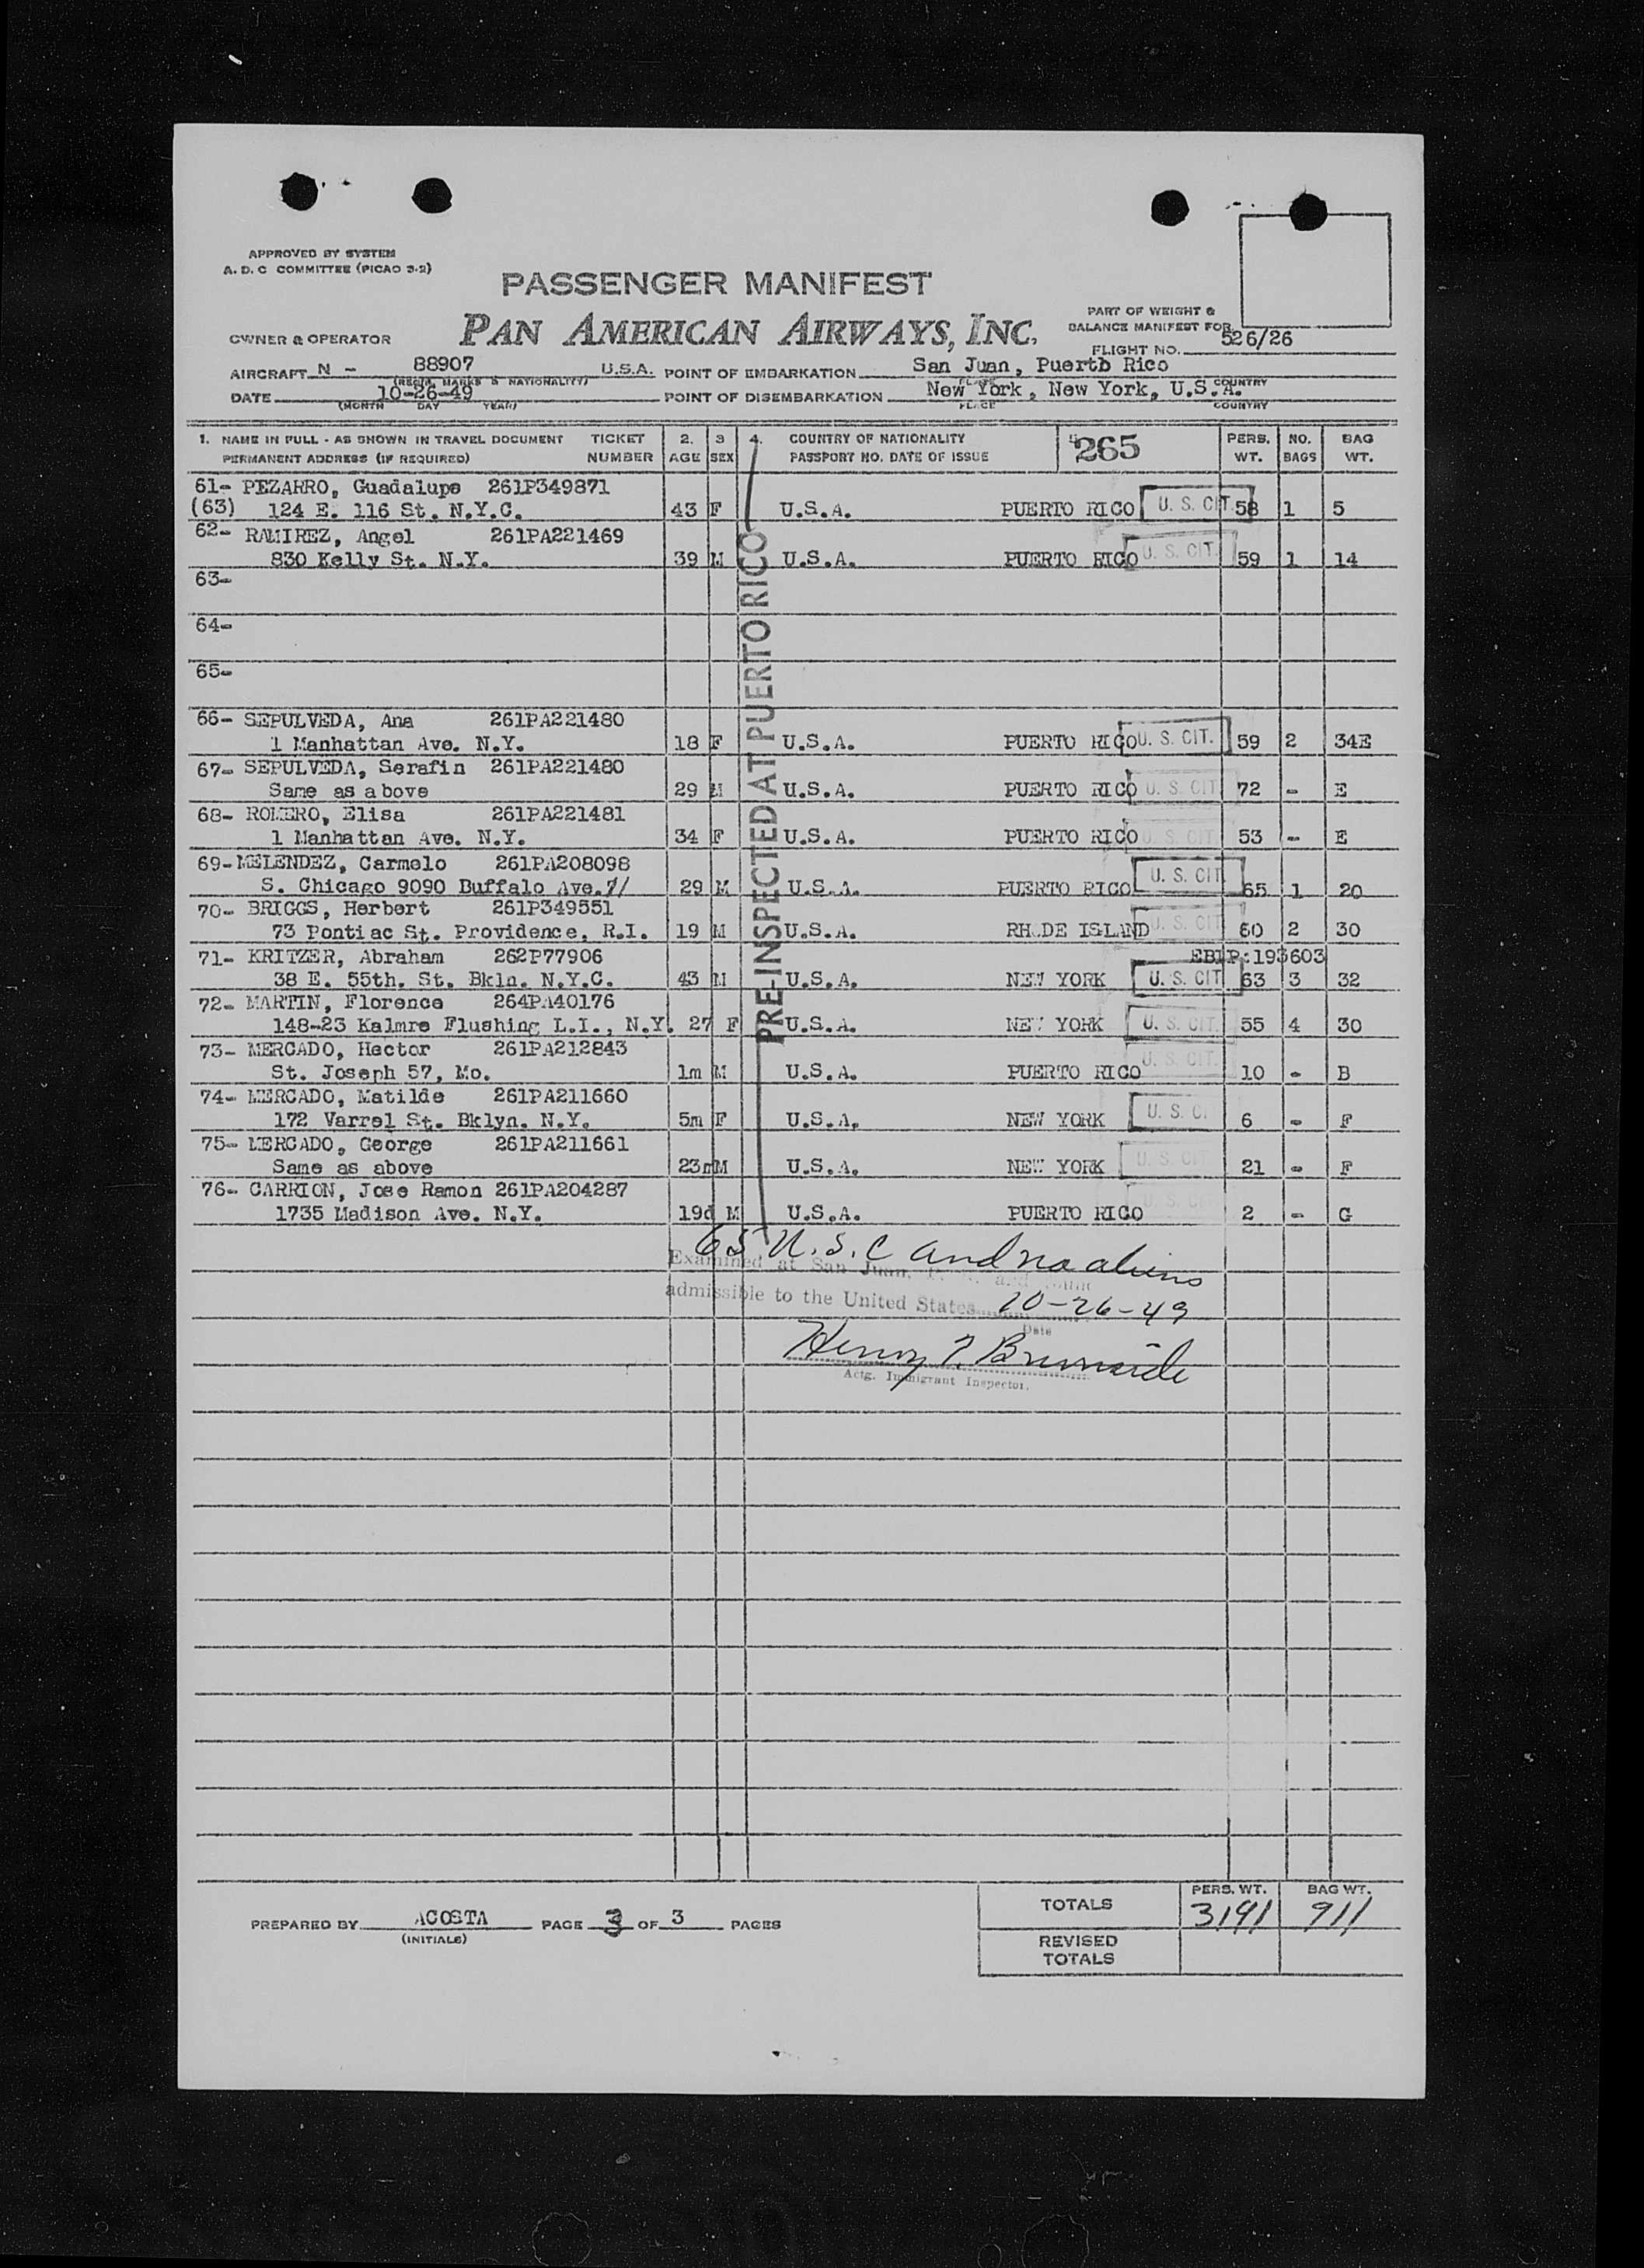 APPROVED BY SYSTEM
A. D. C COMMITTEE (PICAO 3-2)
PASSENGER MANIFEST
PAN AMERICAN AIRWAYS, INC.
OWNER & OPERATOR
PART OF WEIGHT &
BALANCE MANIFEST FOR
FLIGHT NO. 526/26
AIRCRAFT N - 88907 U.S.A. POINT OF EMBARKATION San Juan, Puerto Rico
(REGIS. MARKS & NATIONALITY) PLACE COUNTRY
DATE 10-26-49 POINT OF DISEMBARKATION New York, New York, U.S.A.
(MONTH DAY YEAR) PLACE COUNTRY
1. NAME IN FULL - AS SHOWN IN TRAVEL DOCUMENT TICKET 2. 3 4. COUNTRY OF NATIONALITY 5 265 PERS. NO. BAG
PERMANENT ADDRESS (IF REQUIRED) NUMBER AGE SEX PASSPORT NO. DATE OF ISSUE WT. BAGS WT.
61- PEZARRO, Guadalupe 261P349871
(63) 124 E. 116 St. N.Y.C. 43 F U.S.A. PUERTO RICO U. S. CIT. 58 1 5
62- RAMIREZ, Angel 261PA221469
830 Kelly St. N.Y. 39 M U.S.A. PUERTO RICO U. S. CIT. 59 1 14
63-
64-
65-
PRE-INSPECTED AT PUERTO RICO
66- SEPULVEDA, Ana 261PA221480
1 Manhattan Ave. N.Y. 18 F U.S.A. PUERTO RICO U. S. CIT. 59 2 34E
67- SEPULVEDA, Serafin 261PA221480
Same as above 29 M U.S.A. PUERTO RICO U. S. CIT 72 - E
68- ROMERO, Elisa 261PA221481
1 Manhattan Ave. N.Y. 34 F U.S.A. PUERTO RICO U. S. CIT. 53 - E
69- MELENDEZ, Carmelo 261PA208098
S. Chicago 9090 Buffalo Ave. 29 M U.S.A. PUERTO RICO U. S. CIT 65 1 20
70- BRIGGS, Herbert 261P349551
73 Pontiac St. Providence, R.I. 19 M U.S.A. RH.DE ISLAND U. S. CIT 60 2 30
71- KRITZER, Abraham 262P77906 EBTP:193603
38 E. 55th. St. Bkln. N.Y.C. 43 M U.S.A. NEW YORK U. S. CIT 63 3 32
72- MARTIN, Florence 264PA40176
148-23 Kalmre Flushing L.I., N.Y. 27 F U.S.A. NEW YORK U. S. CIT. 55 4 30
73- MERCADO, Hector 261PA212843
St. Joseph 57, Mo. 1m M U.S.A. PUERTO RICO U. S. CIT. 10 - B
74- MERCADO, Matilde 261PA211660
172 Varrel St. Bklyn. N.Y. 5m F U.S.A. NEW YORK U. S. C. 6 - F
75- MERCADO, George 261PA211661
Same as above 23m M U.S.A. NEW YORK U. S. CIT 21 - F
76- CARRION, Jose Ramon 261PA204287
1735 Madison Ave. N.Y. 19d M U.S.A. PUERTO RICO U. S. CIT 2 - G
65 U.S.C and no aliens
Examined at San Juan, P. R. and
admissible to the United States 10-26-49
Date
Henry P. Burnside
Actg. Immigrant Inspector.
PERS. WT. BAG WT.
TOTALS 3191 911
PREPARED BY ACOSTA PAGE 3 OF 3 PAGES
(INITIALS)
REVISED
TOTALS